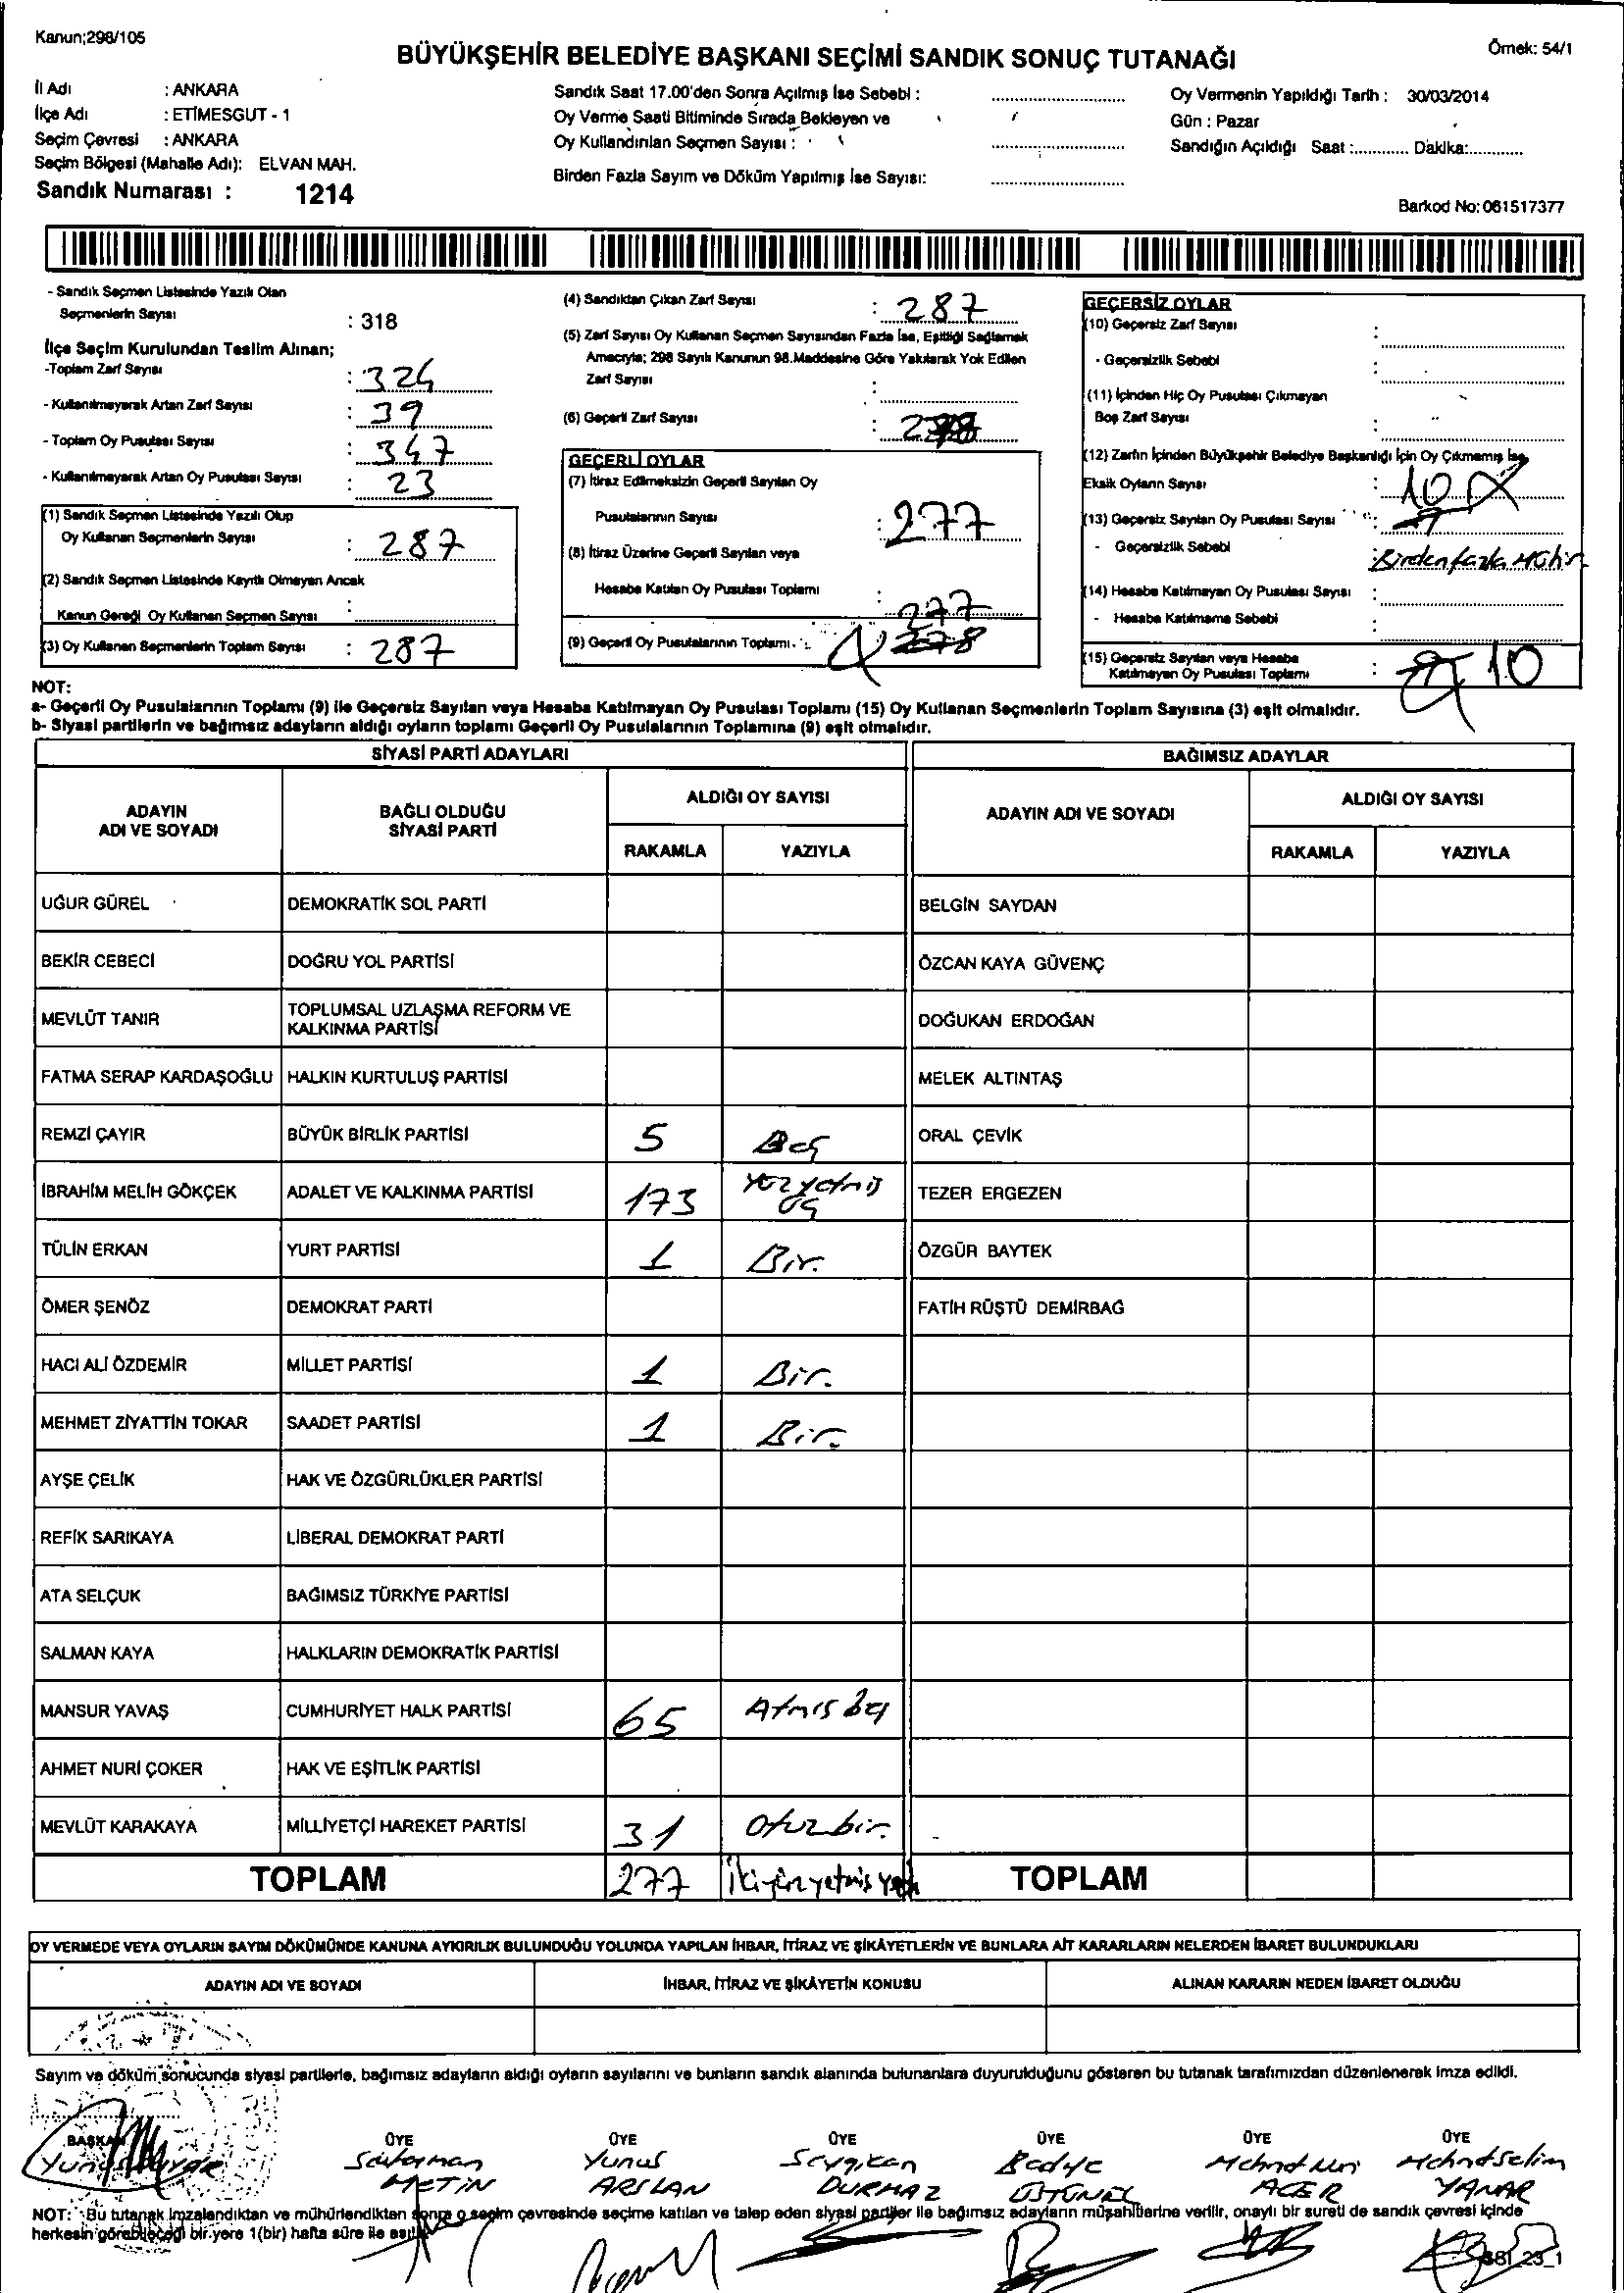 Kanun;298/105
Örnek: 54/1
BÜYÜKŞEHİR BELEDİYE BAŞKANI SEÇİMİ SANDIK SONUÇ TUTANAĞI
İl Adı : ANKARA
İlçe Adı : ETİMESGUT - 1
Seçim Çevresi : ANKARA
Seçim Bölgesi (Mahalle Adı): ELVAN MAH.
Sandık Numarası : 1214
Sandık Saat 17.00'den Sonra Açılmış İse Sebebi : ............
Oy Verme Saati Bitiminde Sırada Bekleyen ve
Oy Kullandırılan Seçmen Sayısı : ............
Birden Fazla Sayım ve Döküm Yapılmış İse Sayısı: ............
Oy Vermenin Yapıldığı Tarih : 30/03/2014
Gün : Pazar
Sandığın Açıldığı Saat :............ Dakika:............
Barkod No: 061517377
- Sandık Seçmen Listesinde Yazılı Olan
Seçmenlerin Sayısı : 318
İlçe Seçim Kurulundan Teslim Alınan;
-Toplam Zarf Sayısı : 324
- Kullanılmayarak Artan Zarf Sayısı : 39
- Toplam Oy Pusulası Sayısı : 347
- Kullanılmayarak Artan Oy Pusulası Sayısı : 23
(1) Sandık Seçmen Listesinde Yazılı Olup
Oy Kullanan Seçmenlerin Sayısı : 287
(2) Sandık Seçmen Listesinde Kayıtlı Olmayan Ancak
Kanun Gereği Oy Kullanan Seçmen Sayısı :
(3) Oy Kullanan Seçmenlerin Toplam Sayısı : 287
(4) Sandıktan Çıkan Zarf Sayısı : 287
(5) Zarf Sayısı Oy Kullanan Seçmen Sayısından Fazla İse, Eşitliği Sağlamak
Amacıyla; 298 Sayılı Kanunun 98.Maddesine Göre Yakılarak Yok Edilen
Zarf Sayısı :
(6) Geçerli Zarf Sayısı :
GEÇERLİ OYLAR
(7) İtiraz Edilmeksizin Geçerli Sayılan Oy
Pusulalarının Sayısı : 277
(8) İtiraz Üzerine Geçerli Sayılan veya
Hesaba Katılan Oy Pusulası Toplamı :
(9) Geçerli Oy Pusulalarının Toplamı. : 277
278
GEÇERSİZ OYLAR
(10) Geçersiz Zarf Sayısı :
- Geçersizlik Sebebi :
(11) İçinden Hiç Oy Pusulası Çıkmayan
Boş Zarf Sayısı :
(12) Zarfın İçinden Büyükşehir Belediye Başkanlığı İçin Oy Çıkmamış İse,
Eksik Oyların Sayısı : 10
(13) Geçersiz Sayılan Oy Pusulası Sayısı :
- Geçersizlik Sebebi : Birden fazla Mühür
(14) Hesaba Katılmayan Oy Pusulası Sayısı :
- Hesaba Katılmama Sebebi :
(15) Geçersiz Sayılan veya Hesaba
Katılmayan Oy Pusulası Toplamı : 10
NOT:
a- Geçerli Oy Pusulalarının Toplamı (9) ile Geçersiz Sayılan veya Hesaba Katılmayan Oy Pusulası Toplamı (15) Oy Kullanan Seçmenlerin Toplam Sayısına (3) eşit olmalıdır.
b- Siyasi partilerin ve bağımsız adayların aldığı oyların toplamı Geçerli Oy Pusulalarının Toplamına (9) eşit olmalıdır.
SİYASİ PARTİ ADAYLARI BAĞIMSIZ ADAYLAR
ADAYIN ADI VE SOYADI BAĞLI OLDUĞU SİYASİ PARTİ ALDIĞI OY SAYISI ADAYIN ADI VE SOYADI ALDIĞI OY SAYISI
RAKAMLA YAZIYLA RAKAMLA YAZIYLA
UĞUR GÜREL DEMOKRATİK SOL PARTİ BELGİN SAYDAN
BEKİR CEBECİ DOĞRU YOL PARTİSİ ÖZCAN KAYA GÜVENÇ
MEVLÜT TANIR TOPLUMSAL UZLAŞMA REFORM VE KALKINMA PARTİSİ DOĞUKAN ERDOĞAN
FATMA SERAP KARDAŞOĞLU HALKIN KURTULUŞ PARTİSİ MELEK ALTINTAŞ
REMZİ ÇAYIR BÜYÜK BİRLİK PARTİSİ 5 Beş ORAL ÇEVİK
İBRAHİM MELİH GÖKÇEK ADALET VE KALKINMA PARTİSİ 173 Yüzyetmiş üç TEZER ERGEZEN
TÜLİN ERKAN YURT PARTİSİ 1 Bir. ÖZGÜR BAYTEK
ÖMER ŞENÖZ DEMOKRAT PARTİ FATİH RÜŞTÜ DEMİRBAĞ
HACI ALİ ÖZDEMİR MİLLET PARTİSİ 1 Bir.
MEHMET ZİYATTİN TOKAR SAADET PARTİSİ 1 Bir.
AYŞE ÇELİK HAK VE ÖZGÜRLÜKLER PARTİSİ
REFİK SARIKAYA LİBERAL DEMOKRAT PARTİ
ATA SELÇUK BAĞIMSIZ TÜRKİYE PARTİSİ
SALMAN KAYA HALKLARIN DEMOKRATİK PARTİSİ
MANSUR YAVAŞ CUMHURİYET HALK PARTİSİ 65 Atmış beş
AHMET NURİ ÇOKER HAK VE EŞİTLİK PARTİSİ
MEVLÜT KARAKAYA MİLLİYETÇİ HAREKET PARTİSİ 31 Otuzbir.
TOPLAM 277 İkiyüzyetmiş yedi TOPLAM
OY VERMEDE VEYA OYLARIN SAYIM DÖKÜMÜNDE KANUNA AYKIRILIK BULUNDUĞU YOLUNDA YAPILAN İHBAR, İTİRAZ VE ŞİKÂYETLERİN VE BUNLARA AİT KARARLARIN NELERDEN İBARET BULUNDUKLARI
ADAYIN ADI VE SOYADI İHBAR, İTİRAZ VE ŞİKÂYETİN KONUSU ALINAN KARARIN NEDEN İBARET OLDUĞU
Sayım ve döküm sonucunda siyasi partilerle, bağımsız adayların aldığı oyların sayılarını ve bunların sandık alanında bulunanlara duyurulduğunu gösteren bu tutanak tarafımızdan düzenlenerek imza edildi.
BAŞKAN ÜYE ÜYE ÜYE ÜYE ÜYE ÜYE
Yunus Süleyman Yunus Seyçkan Bediye Mehmet Nuri Mehmet Selim
METİN ARSLAN DURMAZ ÜSTÜNEL ACER YANAR
NOT: Bu tutanak imzalandıktan ve mühürlendikten sonra o seçim çevresinde seçime katılan ve talep eden siyasi partiler ile bağımsız adayların müşahitlerine verilir, onaylı bir sureti de sandık çevresi içinde
herkesin görebileceği bir yere 1(bir) hafta süre ile asılır.
SBI_23_1